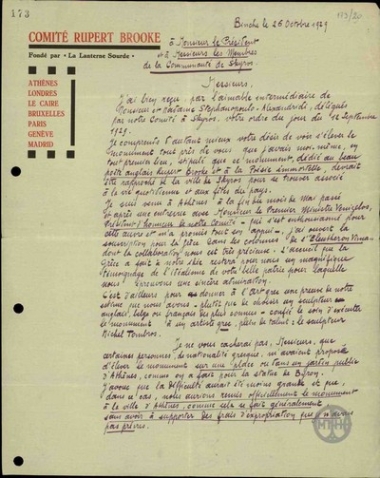 173
173/20
Binche le 26 Octobre 1929
COMITÉ RUPERT BROOKE
Fondé par « La Lanterne Sourde »
ATHÈNES
LONDRES
LE CAIRE
BRUXELLES
PARIS
GENÈVE
MADRID
à Monsieur le Président
à Messieurs les Membres
de la Communauté de Skyros.
Messieurs,
J'ai bien reçu, par l'aimable intermédiaire de
Monsieur et Madame Alexandridi, délégués
par notre Comité à Skyros, votre ordre du jour du Septembre
1929.
Je comprends d'autant mieux votre désir de voir s'élever le
monument tout près de vous que j'avais moi-même, en
tout premier lieu, stipulé que ce monument, dédié au beau
poète anglais Rupert Brooke et à la Poésie immortelle, devrait
être rapproché de la ville de Skyros pour se trouver associé
à la vie quotidienne et aux fêtes du pays.
Je suis venu à Athènes à la fin du mois de Mai passé
et après une entrevue avec Monsieur le Premier Ministre Venizelos,
Président d'honneur de notre Comité - qui s'est enthousiasmé pour
cette œuvre et m'a promis tout son appui -, j'ai ouvert la
souscription pour la Grèce dans les colonnes de l'Eleftheron Vima
dont la collaboration nous est très précieuse. L'accueil que la
Grèce a fait à notre idée restera pour nous un magnifique
témoignage de l'idéalisme de votre belle patrie pour laquelle
nous éprouvons une sincère admiration.
C'est d'ailleurs pour donner à l'art grec une preuve de notre
estime que nous avons - plutôt que de choisir un sculpteur
anglais, belge ou français des plus connus - confié le soin d'exécuter
le monument à un artiste grec, plein de talent: le sculpteur
Michel Tombros.
Je ne vous cacherai pas, Messieurs, que
certaines personnes, de nationalité grecque, m'avaient proposé
d'élever le monument sur une place ou dans un jardin public
d'Athènes, comme on a fait pour la statue de Byron.
J'avoue que la difficulté aurait été moins grande et que,
dans ce cas, nous aurions remis officiellement le monument
à la ville d'Athènes, comme cela se fait généralement
sans avoir à supporter des frais d'expropriation que nous n'avons
pas prévus.